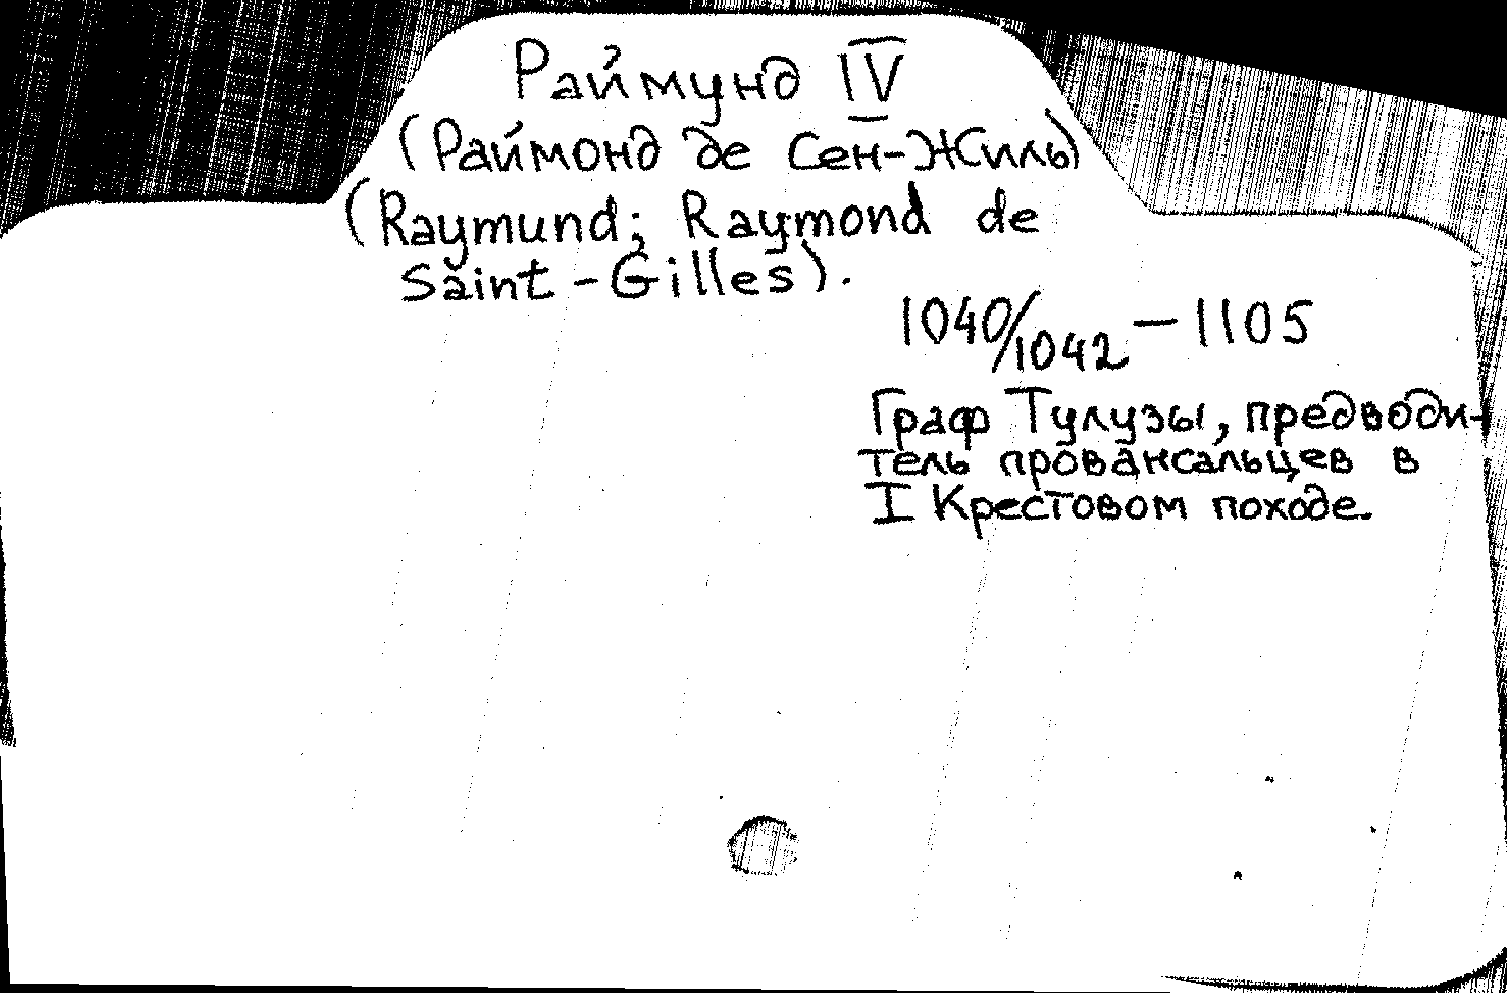 Раймунд IV
(Раймонд де Сен-Жиль)
(Raymund; Raymond de
Saint-Gilles).
1040/1042 – 1105
Граф Тулузы, предводи-
тель провансальцев в
I Крестовом походе.